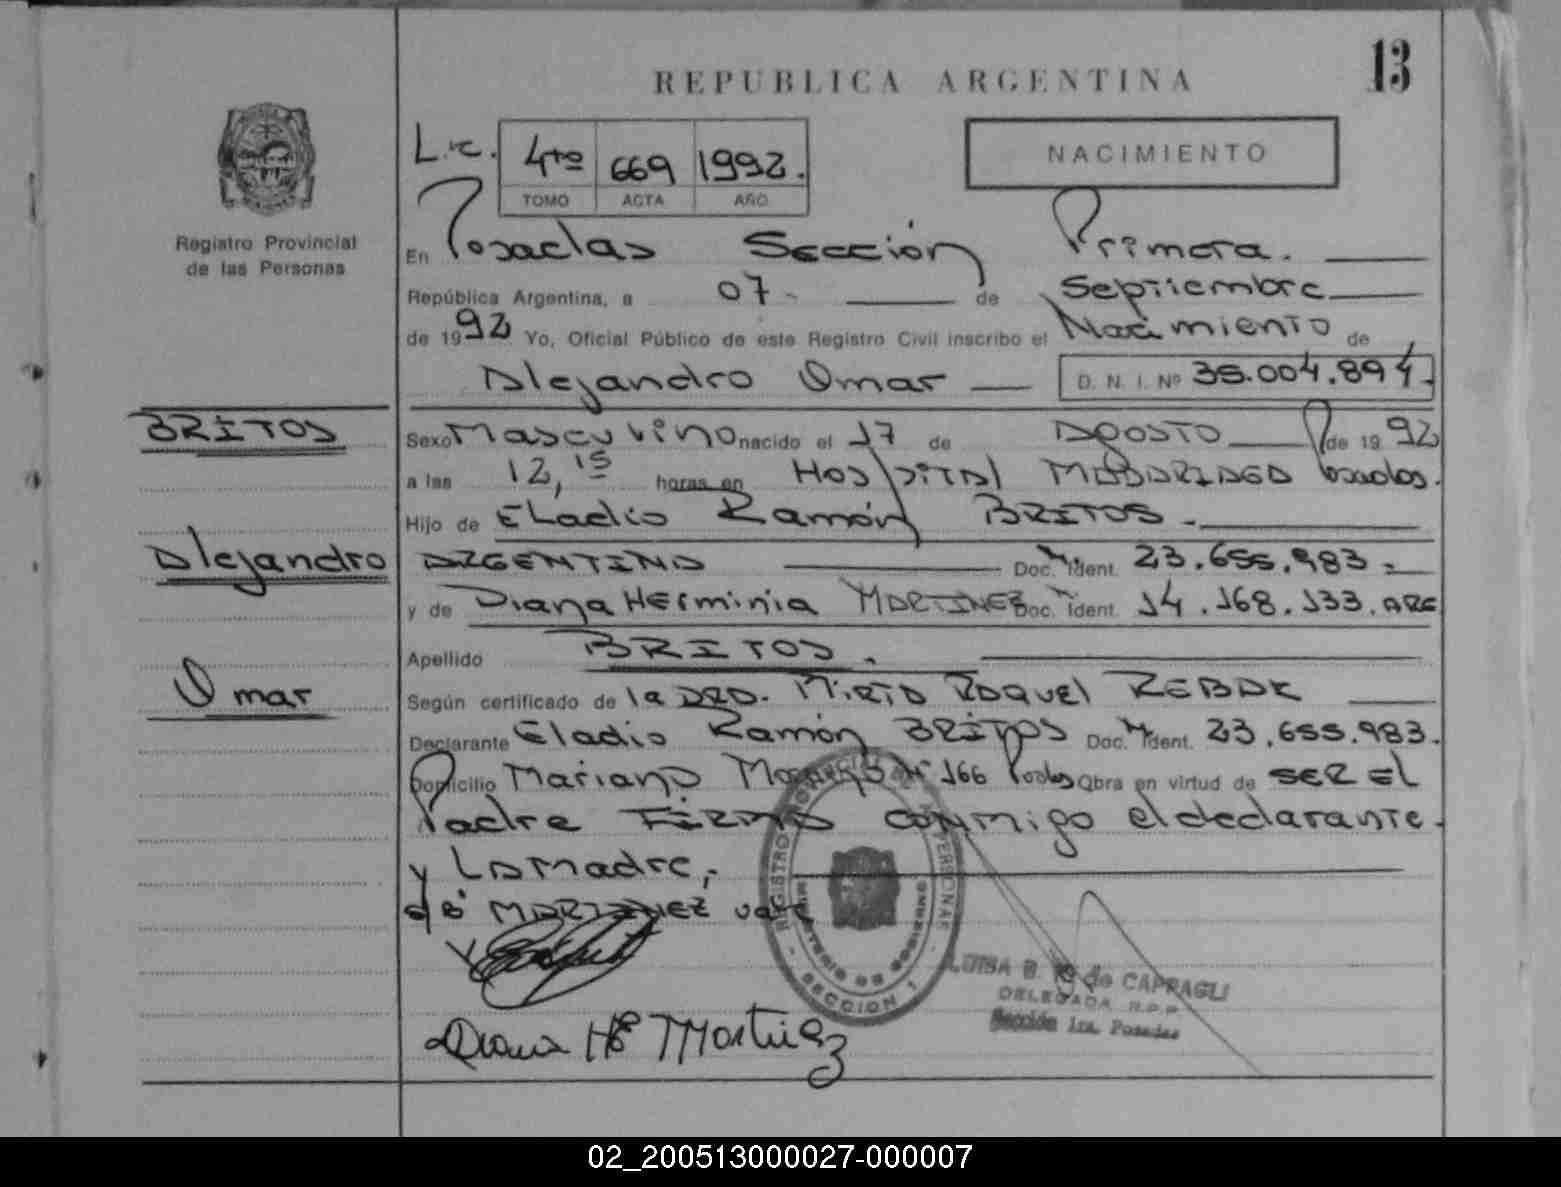 13
REPUBLICA ARGENTINA
Registro Provincial
de las Personas
L.c. 4to 669 1992.
TOMO ACTA AÑO
NACIMIENTO
En Posadas Sección Primera.
República Argentina, a 07 - de Septiembre
de 1992 Yo, Oficial Público de este Registro Civil inscribo el Nacimiento de
Alejandro Omar D. N. I. Nº 35.004.894.
BRITOS
Alejandro
Omar
Sexo Masculino nacido el 17 de AGOSTO de 1992
a las 12,15 horas en HOSPITAL MADARIAGA Posadas.
Hijo de Eladio Ramón BRITOS -
ARGENTINO Doc. M. Ident. 23.655.983 -
y de Diana Herminia MARTINEZ Doc. M. Ident. 14.168.133. ARG
Apellido BRITOS.
Según certificado de la DRA. MIRTA RAQUEL REBAK
Declarante Eladio Ramón BRITOS Doc. M. Ident. 23.655.983.
Domicilio Mariano Moreno Nº 166 Posdas Obra en virtud de SER El
Padre FIRMA conmigo el declarante
y LA madre,-
MARTINEZ vale
Diana He Martinez
REGISTRO PROVINCIAL DE LAS PERSONAS
MINISTERIO DE GOBIERNO
- SECCION 1 -
LUISA B. de CAPPAGLI
DELEGADA R.P.P
Sección 1ra. Posadas
02_200513000027-000007